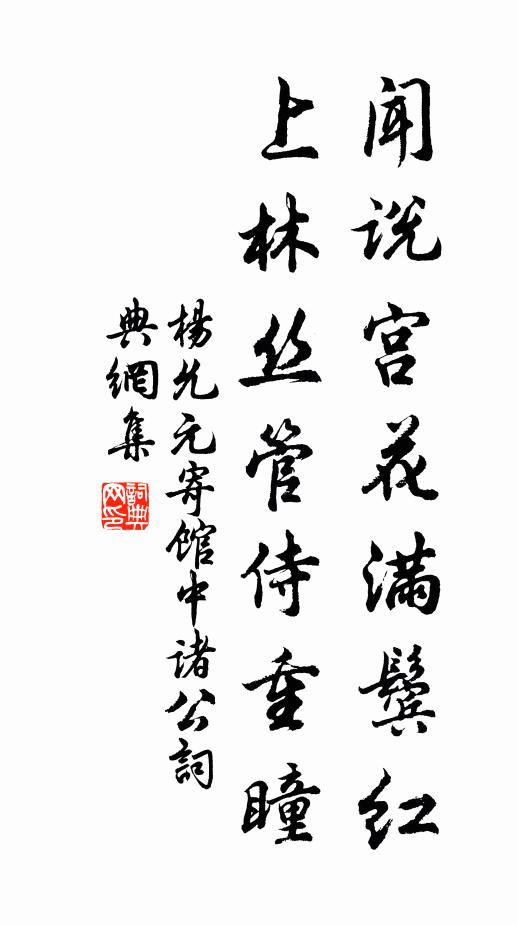 闻说宫花满鬓红
上林丝管侍重瞳
杨允元寄馆中诸公詞
典網集
詞典网印